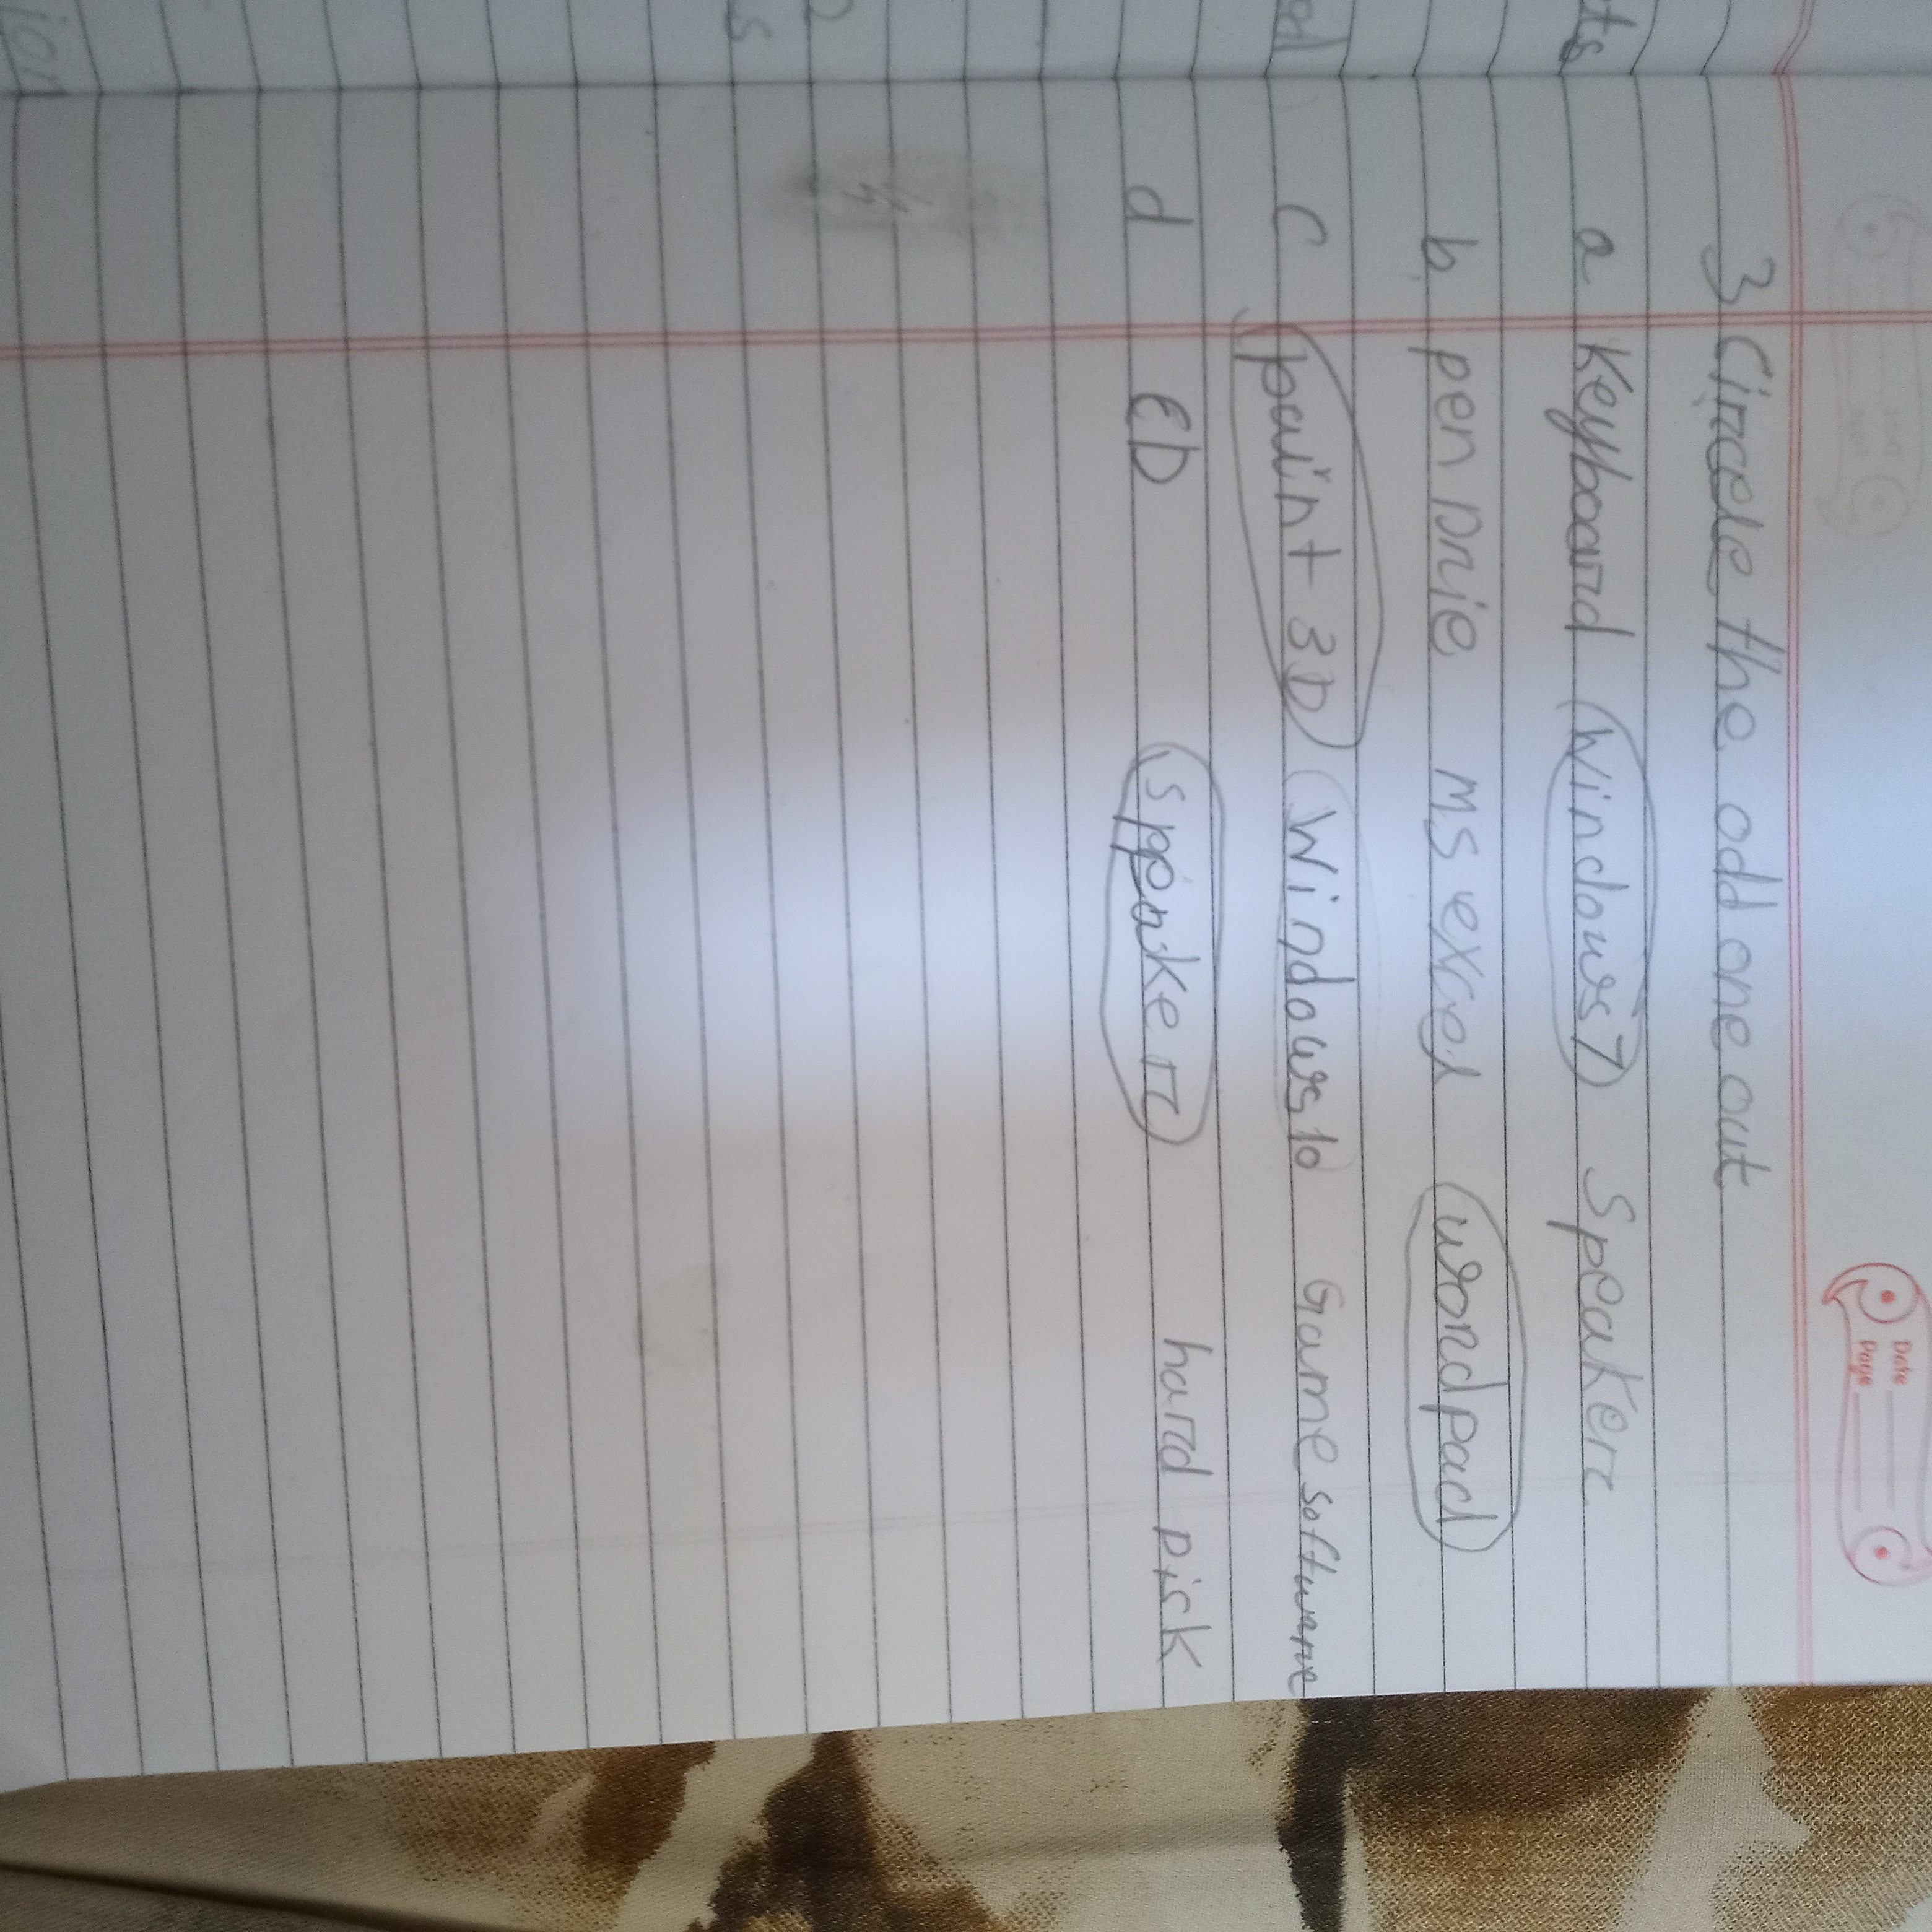 Date
Page
3 Circle the odd one out
a Keyboard Windows 7 Speaker
b pen Drie MS excel wordpad
c paint 3D Windows 10 Game software
d CD speaker hard Disk
ts